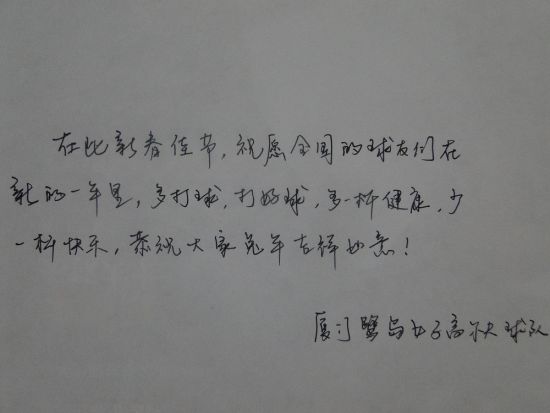 在此新春佳节,祝愿全国的球友们在
新的一年里,多打球,打好球,多一杆健康,少
一杆快乐,恭祝大家兔年吉祥如意!
厦门鹭岛女子高尔夫球队